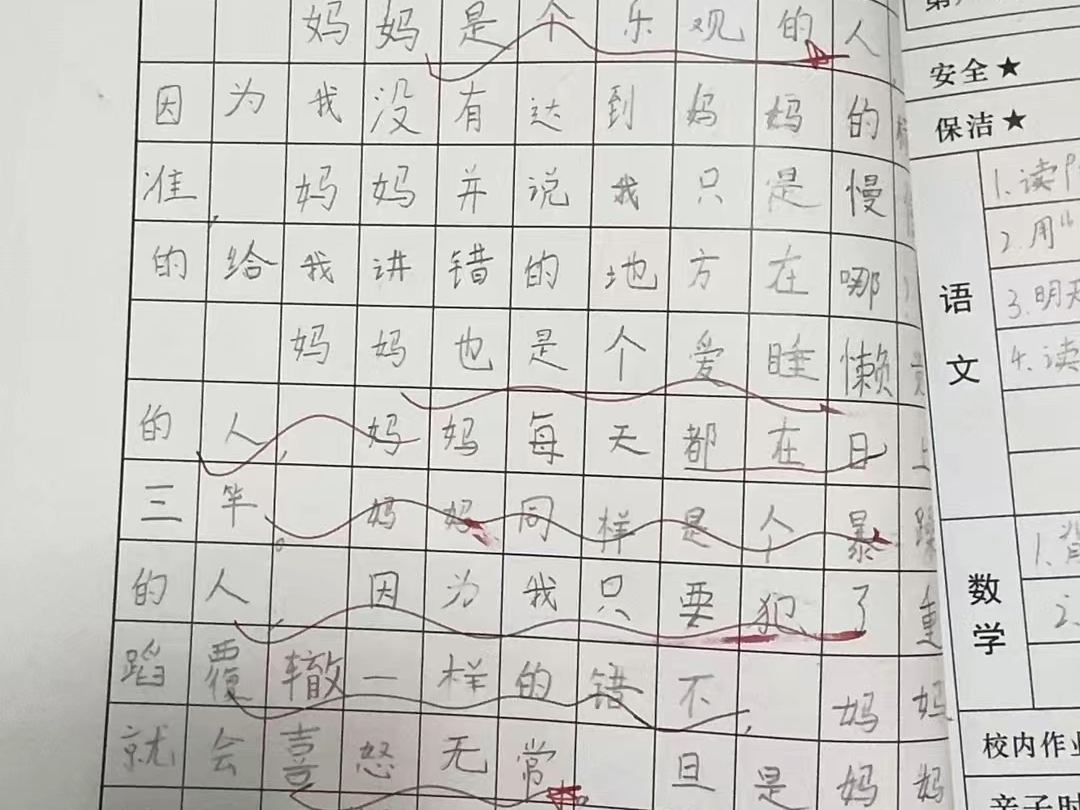 妈妈是个乐观的人
因为我没有达到妈妈的
准,妈妈并说我只是慢
的给我讲错的地方在哪
妈妈也是个爱睡懒
的人,妈妈每天都在日上
三竿。妈妈同样是个暴躁
的人,因为我只要犯了重
蹈覆辙一样的错不,妈妈
就会喜怒无常。旦是妈妈
安全★
保洁★
语文
1.读
2.用
3.明天
4.读
数学
1.背
2.
校内作业
亲子时